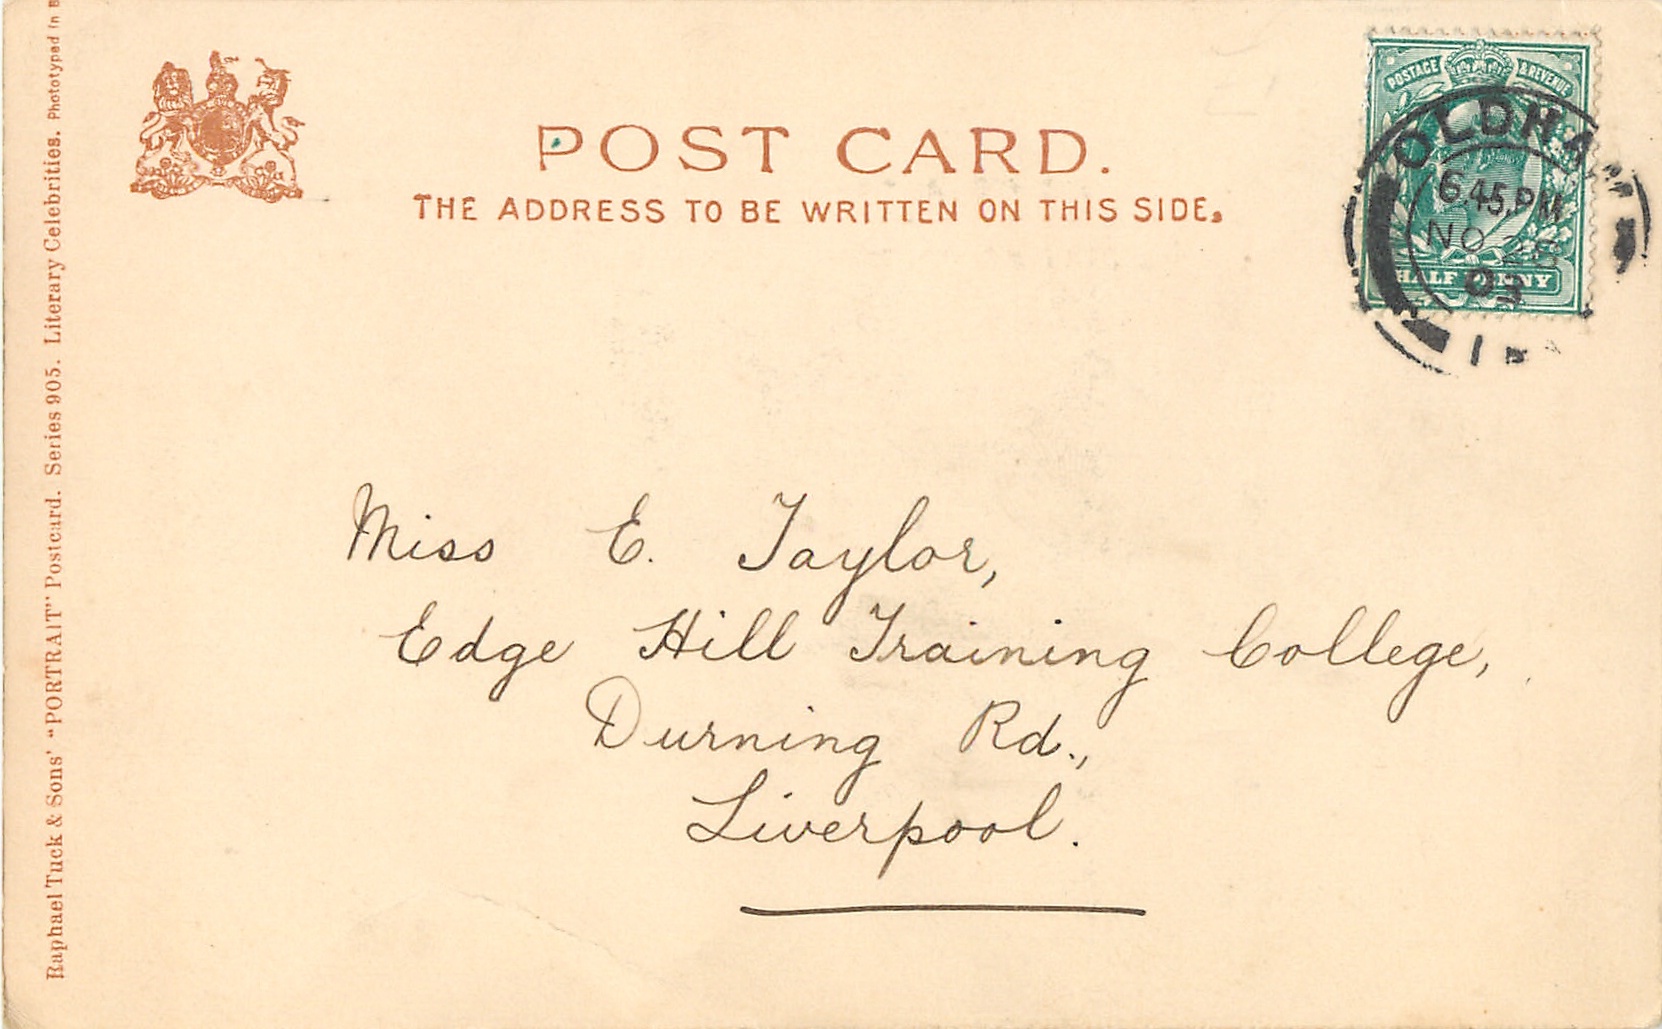 POST CARD.
THE ADDRESS TO BE WRITTEN ON THIS SIDE.
POSTAGE & REVENUE
HALF PENNY
OLDHAM
6.45.PM
NO
03
Miss E. Taylor,
Edge Hill Training College,
Durning Rd.,
Liverpool.
Raphael Tuck & Sons' "PORTRAIT" Postcard. Series 905. Literary Celebrities. Phototyped in B